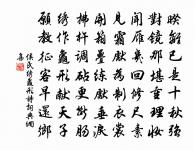 暌離已是十秋強
對鏡那堪重理妝
聞雁幾回修尺素
見霜先為制衣裳
開箱疊練先垂淚
拂杵調砧更斷腸
繡作龜形獻天子
願教征客早還鄉
侯氏繡龜形詩詞典網
集